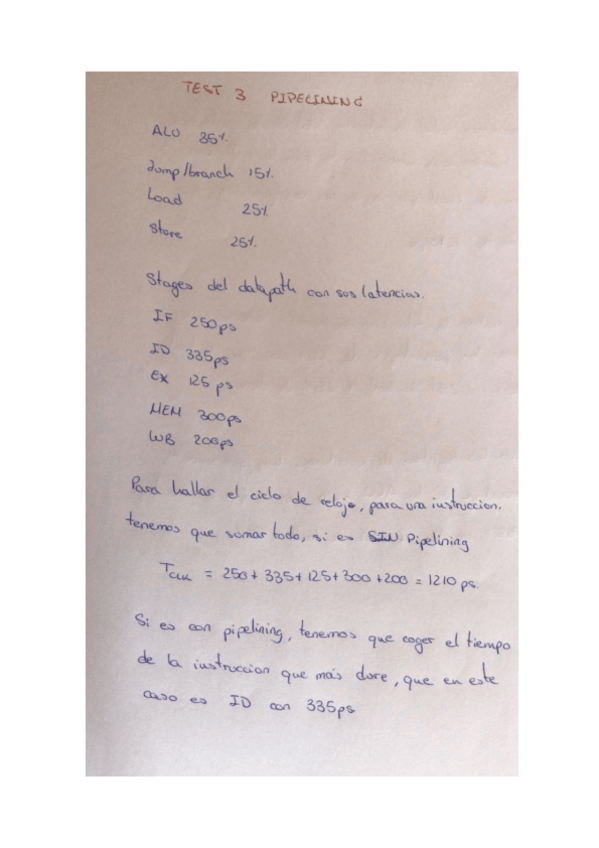 TEST 3 PIPELINING
ALU 35%
Jump/branch 15%
Load 25%
Store 25%.
Stages del datapath con sus latencias.
IF 250ps
ID 335ps
EX 125 ps
MEM 300ps
WB 200ps
Para hallar el ciclo de reloje, para una instruccion.
tenemos que sumar todo, si es SIN Pipelining
TCLK = 250 + 335 + 125 + 300 + 200 = 1210 ps
Si es con pipelining, tenemos que coger el tiempo
de la instruccion que más dure, que en este
caso es ID con 335ps